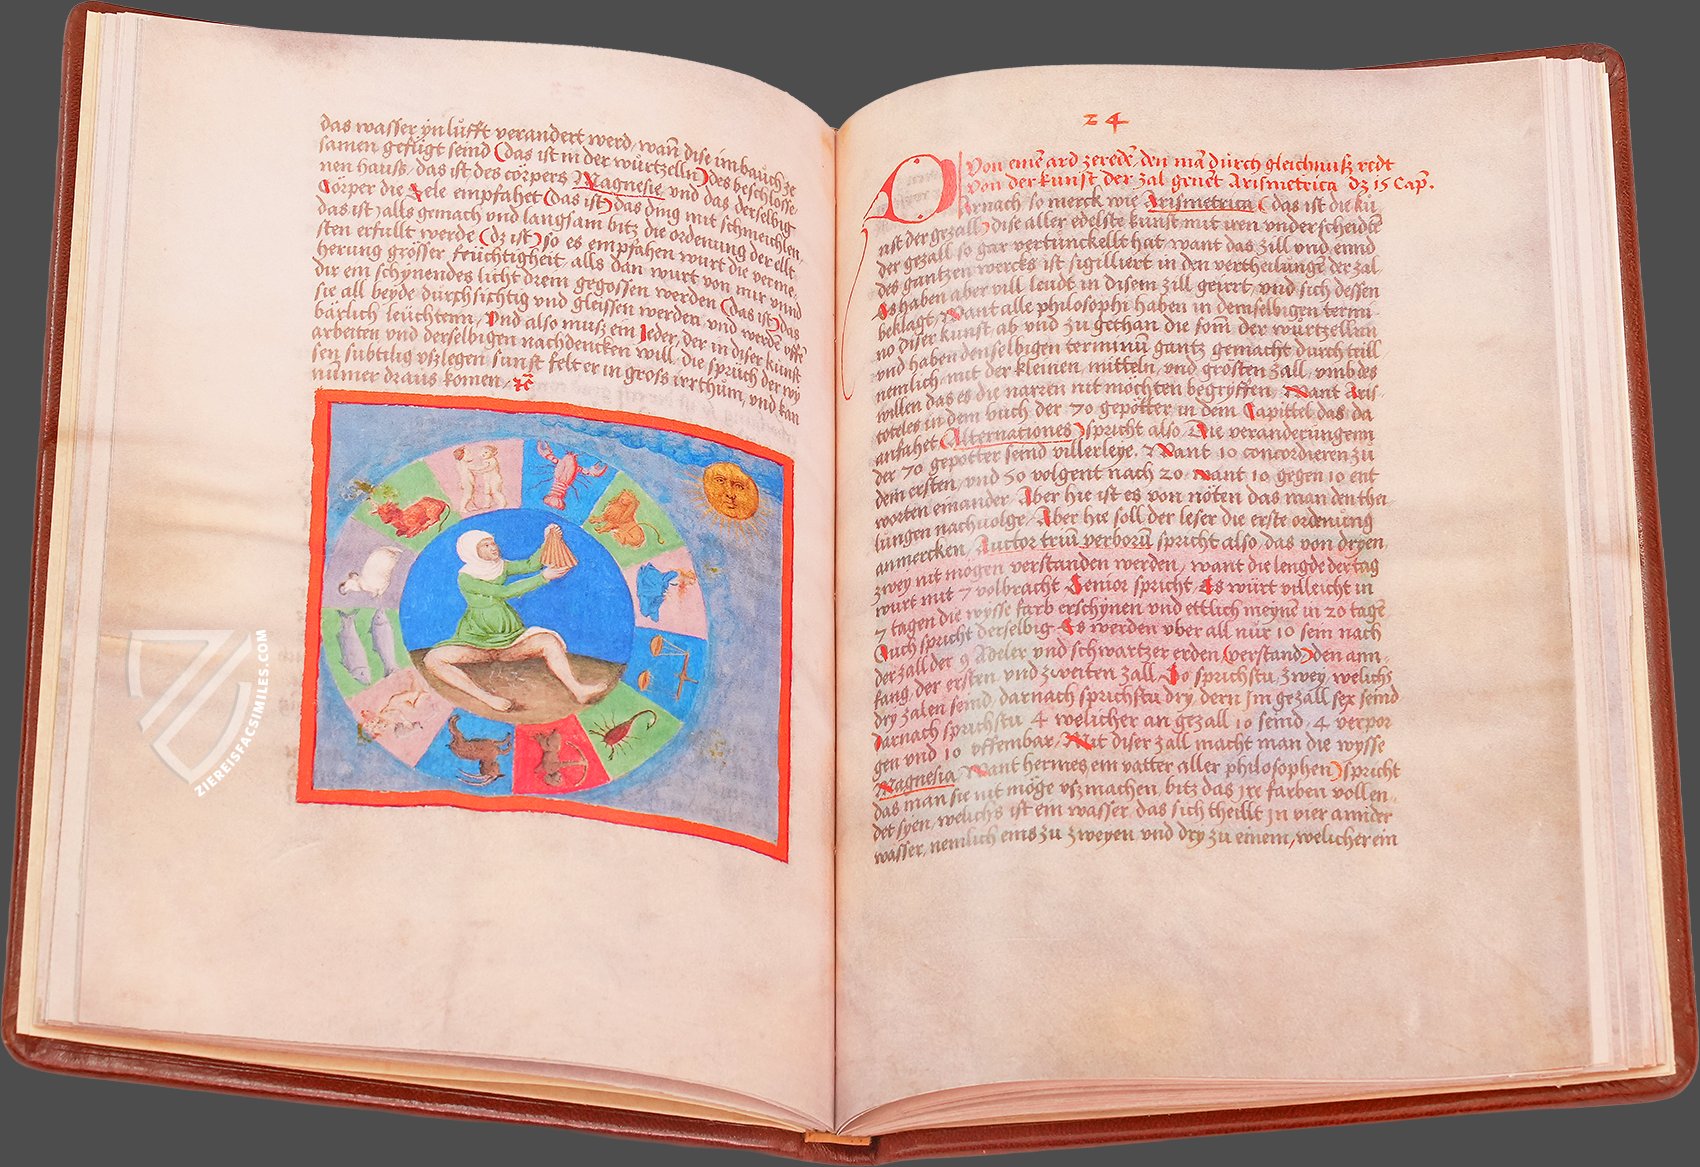 das wasser yn lufft verandert werd, wan̄ dise im bauch ze
samen gefügt seind (das ist in der wurtzelln) des beschlosse
nen hauß, das ist des cörpers Magnesie und das derselbig
Cörper die Sele empfahet (das ist) das ding mit schmeichlen,
das ist alls gemach und langsam bitz die ordenung der ellt,
sten erfullt werde (dz ist) so es empfahen wurt die verme,
herung grösser feuchtigkeit, alls dan wurt von mir und
dir ein schynendes licht drem gegossen werden (das ist) das
sie all beyde durchsichtig und gleissen werden, und werdē offē
barlich leuchtenn, Und also muß ein Jeder, der in diser kunst
arbeiten und derselbigen nachdencken will, die spruch der wy
sen subtilig vßlegen sunst felt er in gross irrthum, und kan
numer draus komen, ⁊c̄
24
Von einē ard ze redē, den man durch gleichnuß redt
Von der kunst der zal genēt Arismetrica dz 15 Cap̄.
Darnach so merck wie Arismetrica (das ist die ku
nst der gezall) dise aller edelste kunst mit iren underscheidēē
der gezall so gar vertunckellt hat want das zill und ennd
des gantzen wercks ist sigilliert in den vertheilungē der zal
Es haben aber vill leudt in disem zill geirrt, und sich dessen
beklagt, Want alle philosophi haben in demselbigen termi
no diser kunst ab und zu gethan die form der wurtzellnn
und haben denselbigen terminū gantz gemacht durch teill
nemlich, mit der kleinen, mitteln, und grosten zall, umb des
willen das es die narren nit möchten begryffen, Want Aris
toteles in dem buch der 70 gepötter in dem Capittel das da
anfahet (Alternationes) spricht also, Die veranderungenn
der 70 gepötter seind villerleye, Want 10 concordieren zu
dem ersten, und 50 volgent nach 20, Want 10 gegen 10 ent
worten einander, Aber hie ist es von nöten das man den thei
lungen nachvolge, Aber hie soll der leser die erste ordenung
anmercken, Auctor triū verborū spricht also, das von dryen,
zwey nit mogen verstanden werden, want die lengde der tag
wurt mit 7 volbracht Senior spricht, Es würt villeicht in
7 tagen die wysse farb erschynen und ettlich meynē in 20 tagē
Ouch spricht derselbig Es werden uber all nur 10 sein nach
der zall der 9 Adeler und schwartzer erden (verstand) den ann,
fang, der ersten und zweiten zall, So sprichstu, zwey, welichs
dry zalen seind, darnach sprichstu dry, dern im gezall sex seind
Darnach sprichstu 4 welicher an gezall 10 seind, 4 verpor
gen und 10 offenbar, Mit diser zall macht man die wysse
Magnesia, Want hermes ein vatter aller philosophen) spricht
das man sie nit möge vszmachen, bitz das ire farben vollen
det syen, welichs ist ein wasser, das sich theillt in vier annder
wasser, nemlich eins zu zweyen und dry zu einem, welicher ein
ZIEREISFACSIMILES.COM